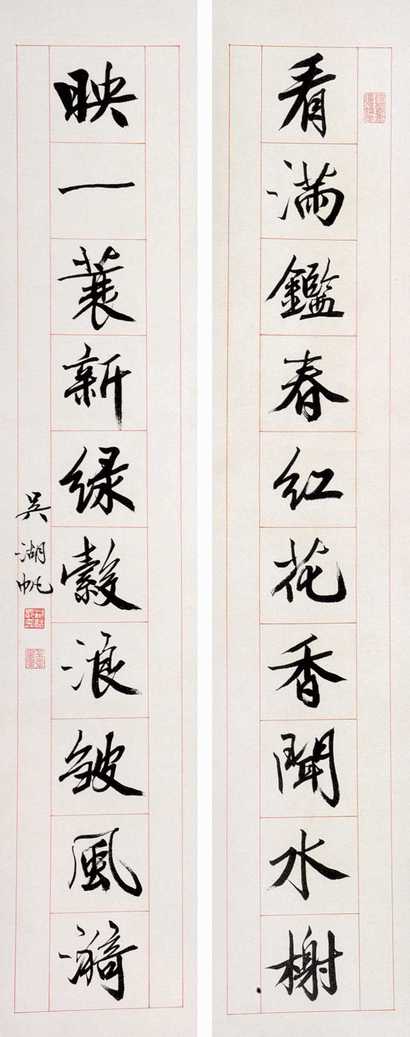 看满鑑春红花香聞水榭
映一蓑新緑縠浪皱風漪
吳湖帆